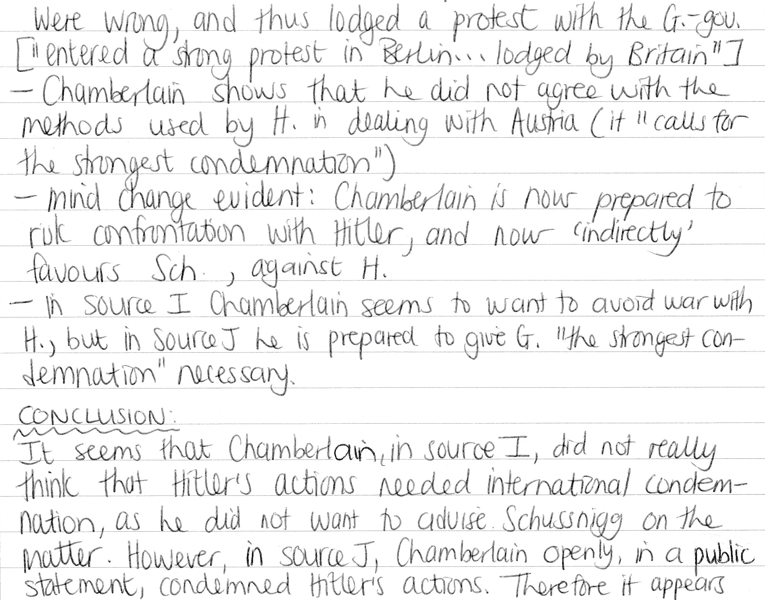 were wrong, and thus lodged a protest with the G.-gov.
["entered a strong protest in Berlin... lodged by Britain"]
- Chamberlain shows that he did not agree with the
methods used by H. in dealing with Austria (it "calls for
the strongest condemnation")
- mind change evident: Chamberlain is now prepared to
risk confrontation with Hitler, and now 'indirectly'
favours Sch., against H.
- In source I Chamberlain seems to want to avoid war with
H., but in source J he is prepared to give G. "the strongest con-
demnation" necessary.
CONCLUSION:
It seems that Chamberlain, in source I, did not really
think that Hitler's actions needed international condem-
nation, as he did not want to advise Schussnigg on the
matter. However, in source J, Chamberlain openly, in a public
statement, condemned Hitler's actions. Therefore it appears